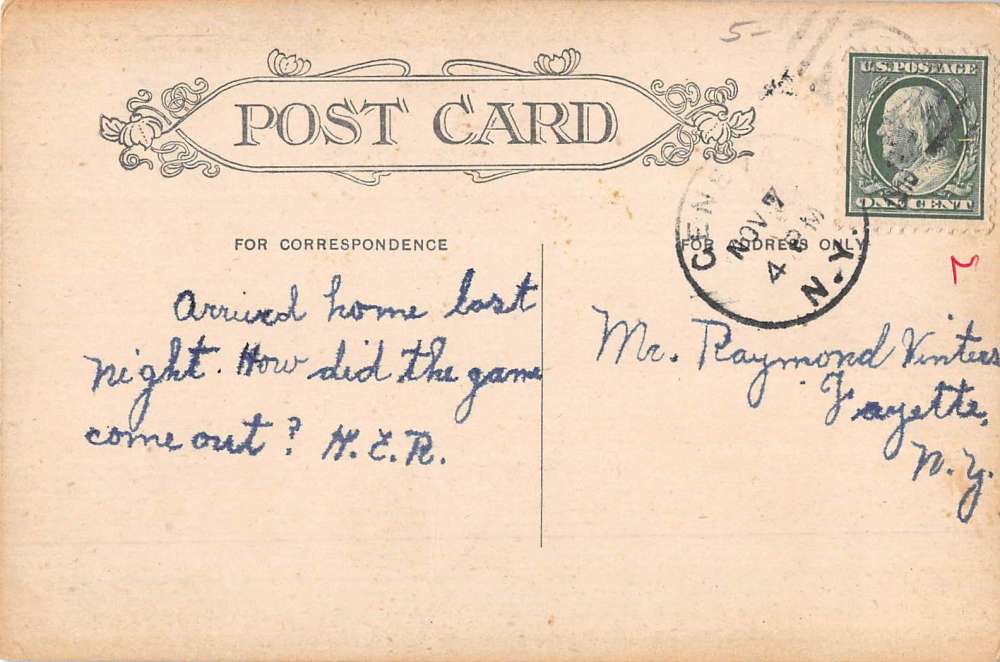 5-
U.S. POSTAGE
POST CARD
ONE CENT
NOV 7
4 PM
N.Y.
FOR CORRESPONDENCE
FOR ADDRESS ONLY
Arrived home last
night. How did the game
come out? H.E.R.
Mr. Raymond Vinters
Fayette,
N.Y.